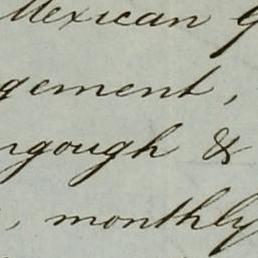 Mexican G
gement,
ngough &
, monthly